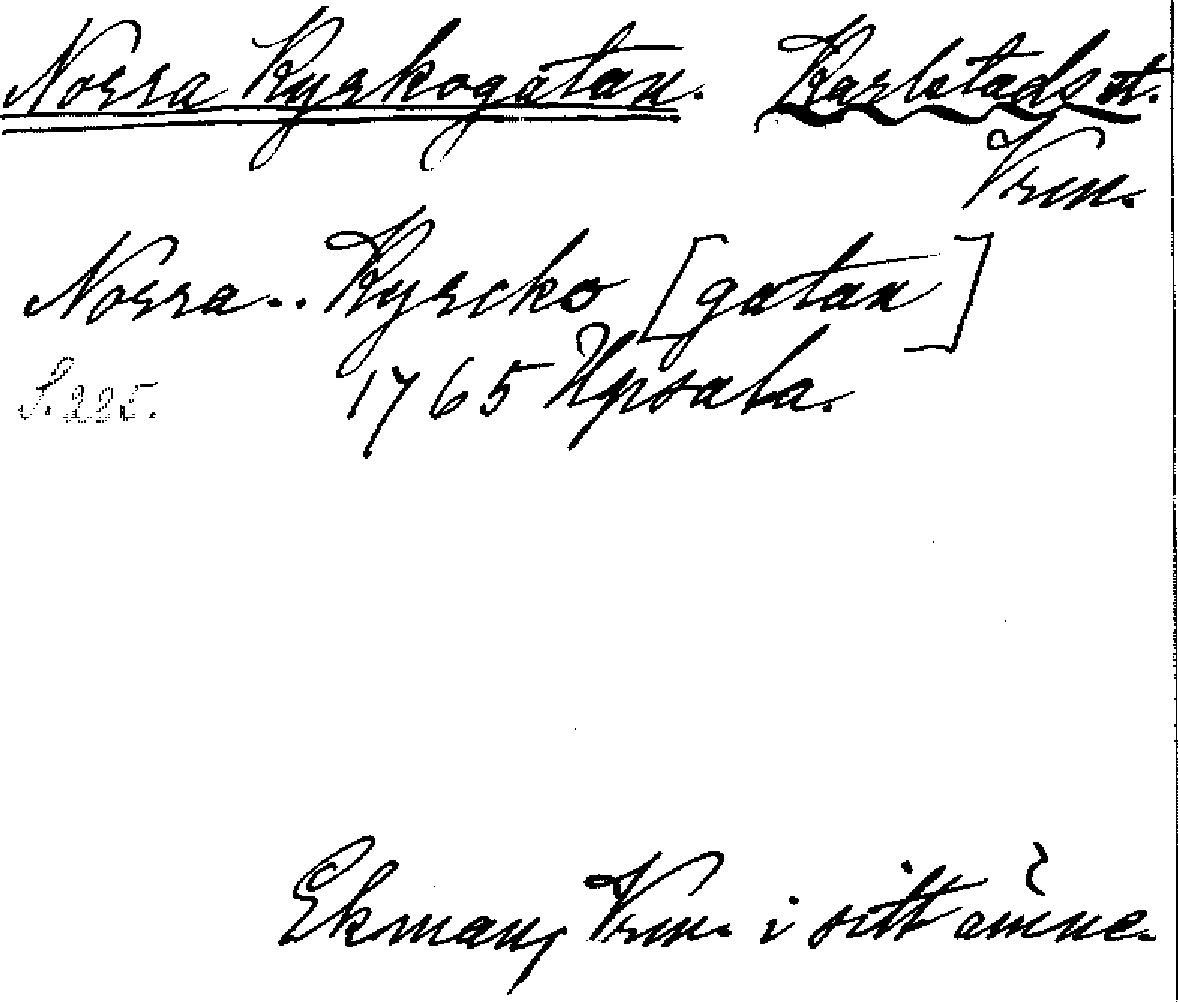 Norra Kyrkogatan. Karlstads st.
Vrm.
Norra.. Kyrcko [gatan]
S. 225. 1765 Upsala.
Ekman, Vrm. i sitt ämne.